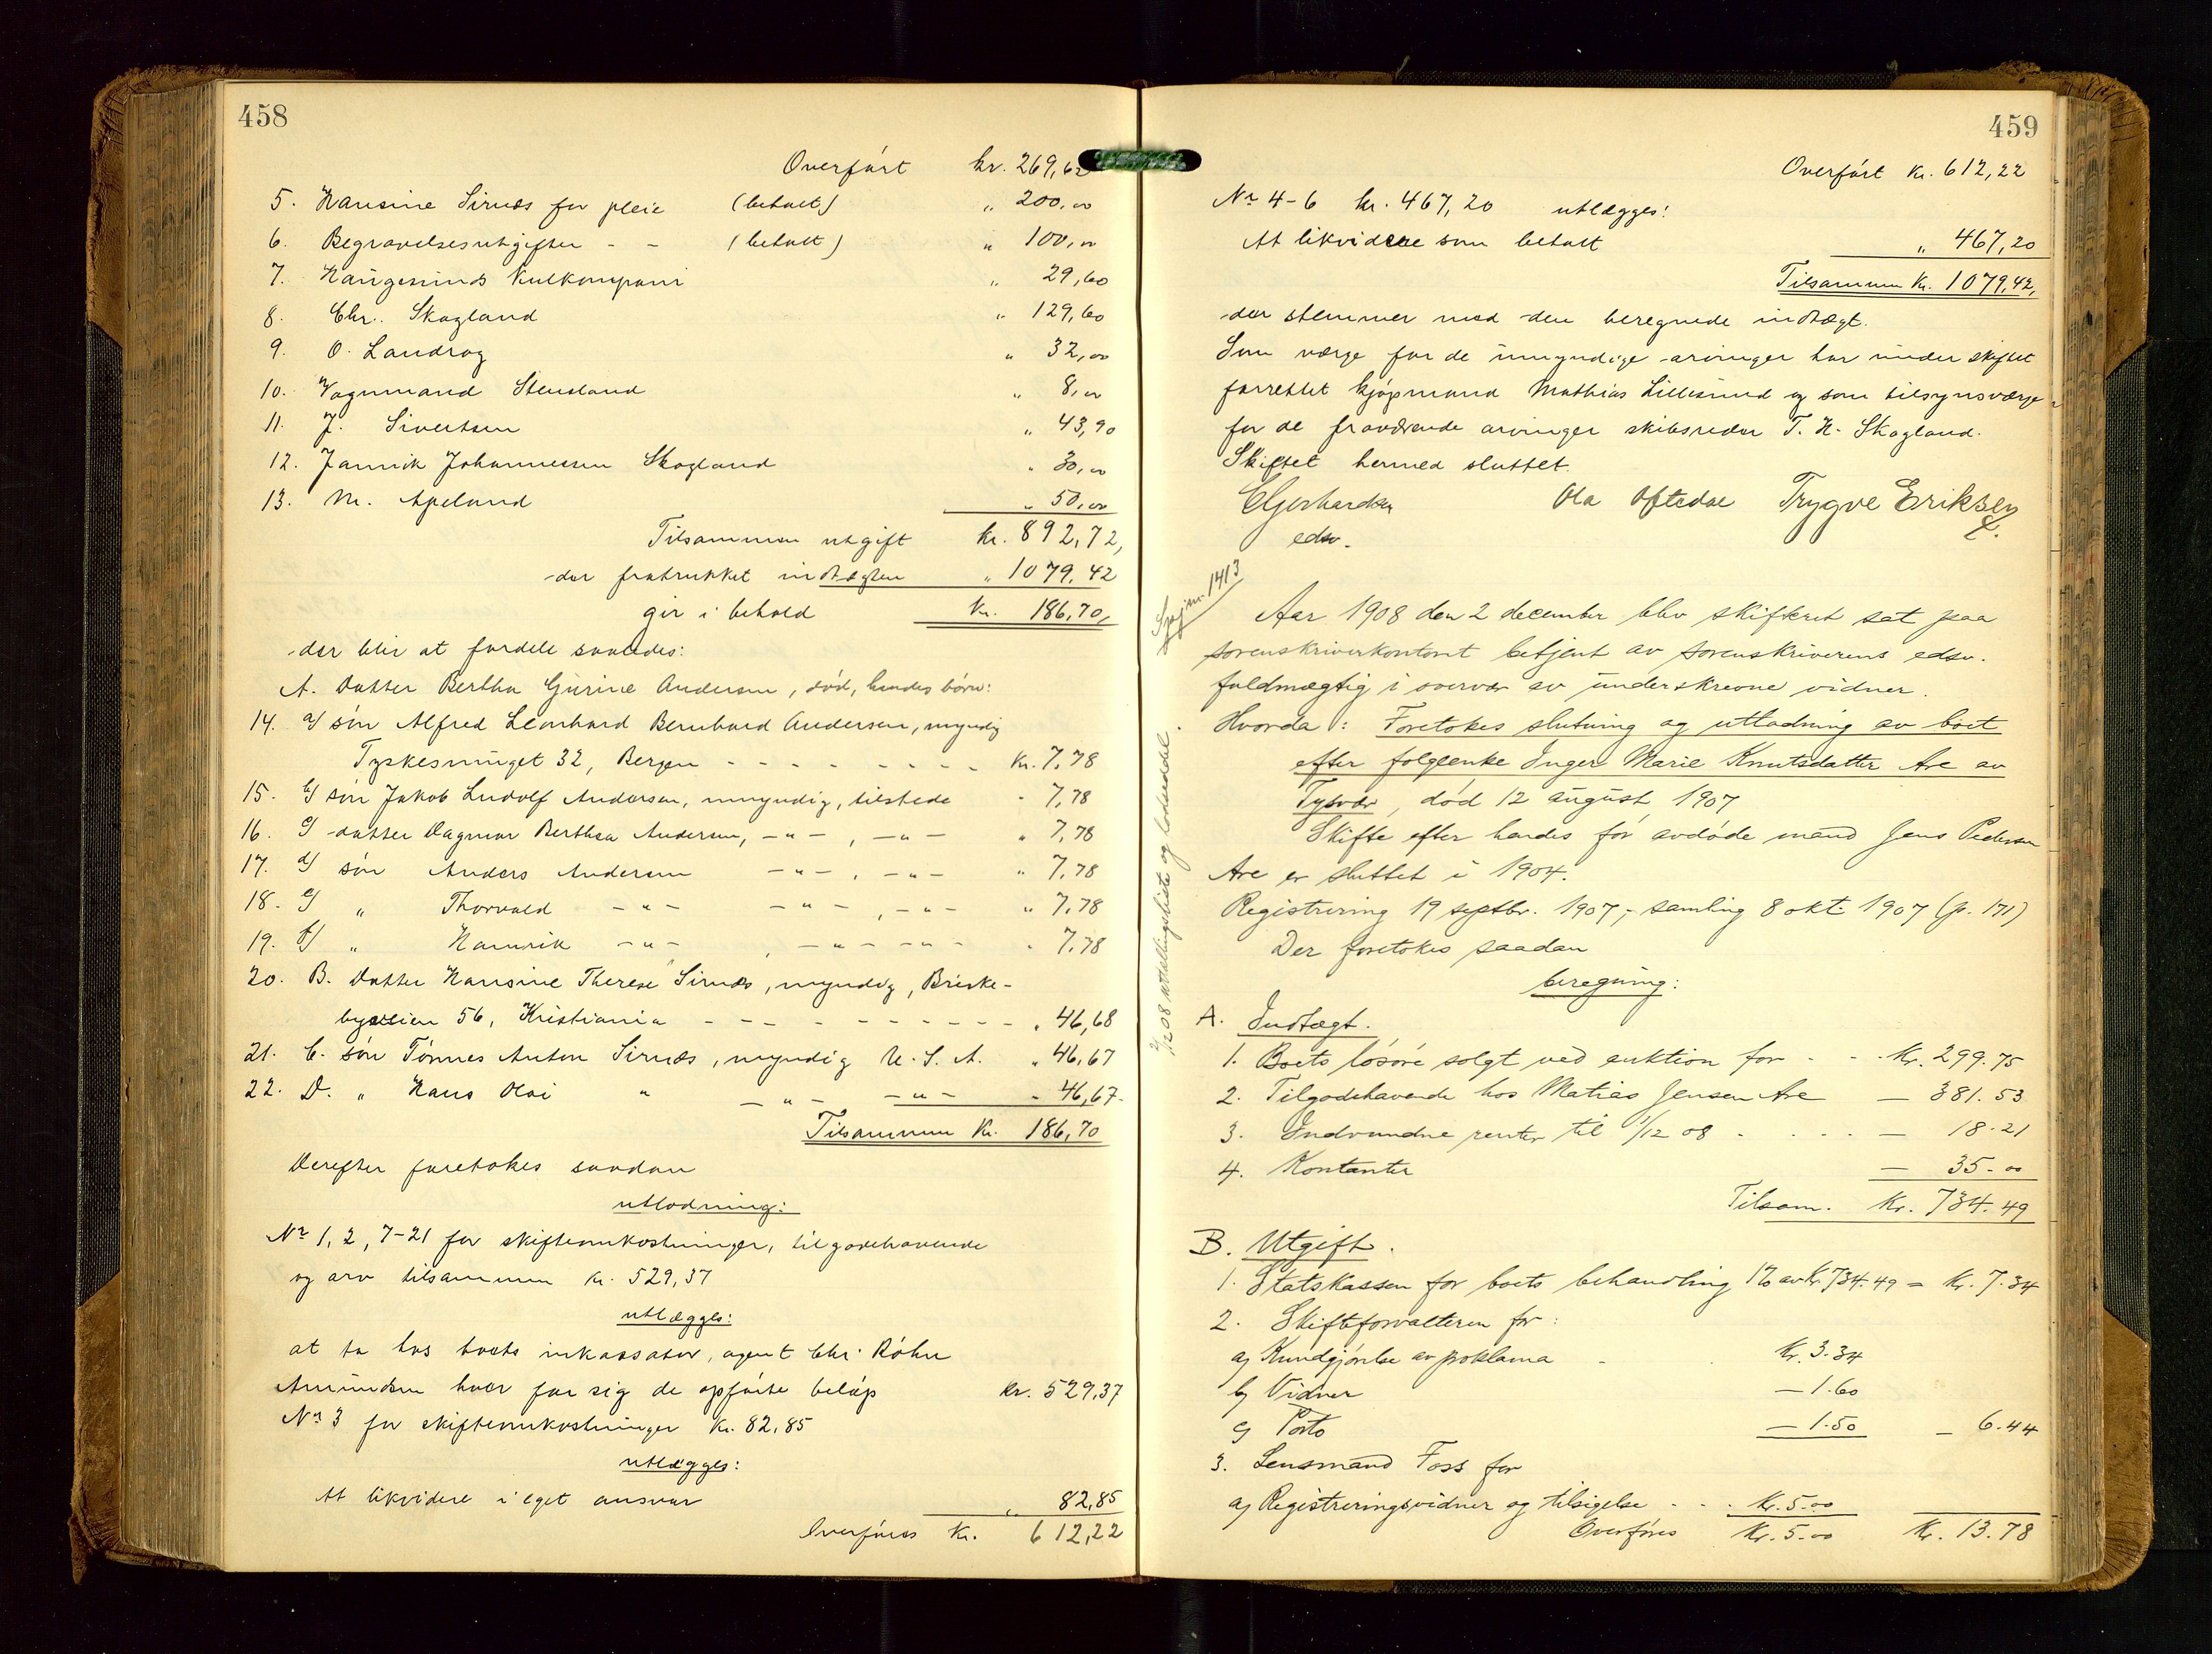 458
Overført kr. 269,62
5. Hansine Sirnæs for pleie (betalt) " 200,00
6. Begravelsesutgifter - - (betalt) " 100,00
7. Haugesunds Kulkompani " 29,60
8. Chr. Skogland " 129,60
9. O. Landrog " 32,00
10. Vognmand Stensland " 8,00
11. J. Sivertsen " 43,90
12. Jannik Johannessen Skogland " 30,00
13. M. Apeland " 50,00
Tilsammen utgift kr. 892,72,
der fratrukket indtægten " 1079,42
gir i behold Kr. 186,70,
der blir at fordele saaledes:
A. Datter Bertha Gurine Andersen, død, hendes børn:
14. a/ søn Alfred Leonhard Bernhard Andersen, myndig
Tyskesmuget 32, Bergen - - - - - - - - Kr. 7,78
15. b/ søn Jakob Ludolf Andersen, umyndig, tilstede - 7,78
16. c/ datter Dagmar Berthea Andersen, -"- , -"- " 7,78
17. d/ søn Anders Andersen -"- , -"- " 7,78
18. e/ " Thorvald -"- -"- , -"- " 7,78
19. f/ " Hamrik -"- , -"- -"- " 7,78
20. B. Datter Hansine Therese Sirnæs, myndig, Briske-
byveien 56, Kristiania - - - - - - - - - - " 46,68
21. C. søn Tønnes Anton Sirnæs, myndig U. S. A. " 46,67
22. D. " Hans Olai " -"- -"- - 46,67-
Tilsammen Kr. 186,70
Derefter foretokes saadan
utlodning:
No 1, 2, 7-21 for skifteomkostninger, tilgodehavende
og arv tilsammen kr. 529,37
utlægges:
at ta hos boets inkassator, agent Chr. Røhn
Amundsen hver for sig de opførte beløp kr. 529,37
No 3 for skifteomkostninger Kr. 82,85
utlægges:
At likvidere i eget ansvar " 82,85
Overføres Kr. 612,22
459
Overført Kr. 612,22
No 4-6 kr. 467,20 utlægges:
At likvidere som betalt " 467,20
Tilsammen Kr. 1079,42,
der stemmer med den beregnede indtægt.
Som værge for de umyndige arvinger har under skiftet
forrettet kjøpmand Mathias Lillesund og som tilsynsværge
for de fraværende arvinger skibsreder T. H. Skogland.
Skiftet hermed sluttet.
EGerhardsen Ola Oftedal Trygve Eriksen
edsv.
Spj nr. 1413
Aar 1908 den 2 december blev skifteret sat paa
sorenskriverkontoret betjent av sorenskriverens edsv.
fuldmægtig i overvær av underskrevne vidner.
Hvorda: Foretokes slutning og utlodning av boet
efter folgeenke Inger Marie Knutsdatter Are av
Tysvær, død 12 august 1907
Skifte efter hendes før avdøde mand Jens Pedersen
Are er sluttet i 1904.
Registrering 19 septbr. 1907, samling 8 okt. 1907 (p. 171)
Der foretokes saadan
beregning:
A. Indtægt.
1. Boets løsøre solgt ved auktion for - - - Kr. 299.75
2. Tilgodehavende hos Matias Jensen Are — 381.53
3. Indvundne renter til 1/12 08 - . . . — 18.21
4. Kontanter — 35.00
Tilsam. Kr. 734.49
B. Utgift.
1. Statskassen for boets behandling 1% av Kr. 734.49 = Kr. 7.34
2. Skifteforvalteren for:
a) Kundgjørelse av proklama - Kr. 3.34
b) Vidner — 1.60
c) Porto — 1.50 — 6.44
3. Lensmand Foss for
a) Registreringsvidner og tilsigelse - - - Kr. 5.00
Overføres Kr. 5.00 Kr. 13.78
2/12 08 utdelingsliste og lodseddel.